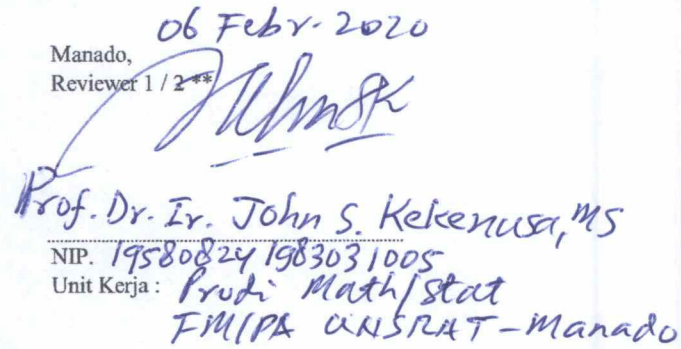 06 Febr. 2020
Manado,
Reviewer 1 / 2 **
Prof. Dr. Ir. John S. Kekenusa, MS
NIP. 19580824 1983031005
Unit Kerja : Prodi Math/Stat
FMIPA UNSRAT - Manado